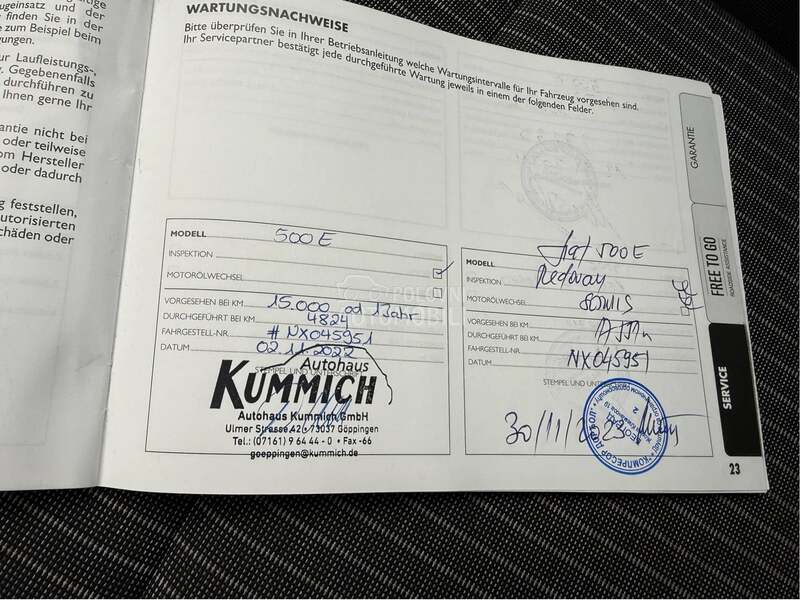 ugeinsatz und der
finden Sie in der
e zum Beispiel beim
gungen.
ur Laufleistungs-,
. Gegebenenfalls
durchführen zu
Ihnen gerne Ihr
antie nicht bei
oder teilweise
om Hersteller
oder dadurch
g feststellen,
utorisierten
chäden oder
WARTUNGSNACHWEISE
Bitte überprüfen Sie in Ihrer Betriebsanleitung welche Wartungsintervalle für Ihr Fahrzeug vorgesehen sind.
Ihr Servicepartner bestätigt jede durchgeführte Wartung jeweils in einem der folgenden Felder.
MODELL 500E
INSPEKTION
MOTORÖLWECHSEL
VORGESEHEN BEI KM 15.000 od 1Jahr
DURCHGEFÜHRT BEI KM 4824
FAHRGESTELL-NR. # NX045951
DATUM 02.11.2022
STEMPEL UND UNTERSCHRIFT
Autohaus
KUMMICH
Autohaus Kummich GmbH
Ulmer Strasse 42 • 73037 Göppingen
Tel.: (07161) 9 64 44-0 • Fax -66
goeppingen@kummich.de
MODELL 500E
INSPEKTION
MOTORÖLWECHSEL
VORGESEHEN BEI KM
DURCHGEFÜHRT BEI KM
FAHRGESTELL-NR. NX045951
DATUM
STEMPEL UND UNTERSCHRIFT
30/11/2023
GARANTIE
FREE TO GO
ROADSIDE ASSISTANCE
SERVICE
23